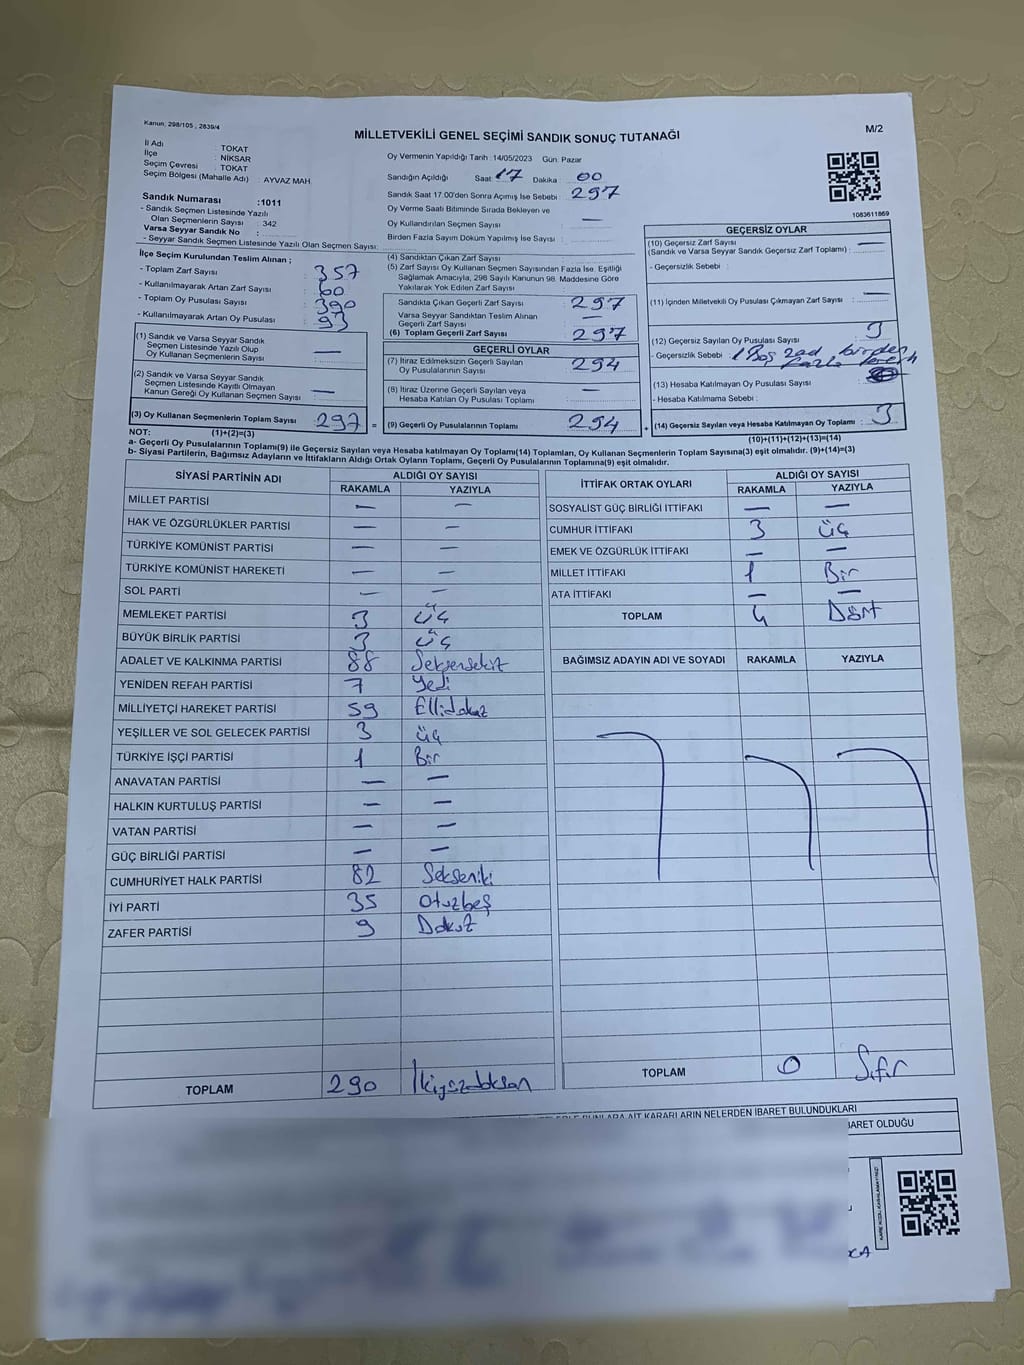 Kanun: 298/105 ; 2839/4
MİLLETVEKİLİ GENEL SEÇİMİ SANDIK SONUÇ TUTANAĞI
M/2
İl Adı : TOKAT
İlçe : NİKSAR
Seçim Çevresi : TOKAT
Seçim Bölgesi (Mahalle Adı) : AYVAZ MAH.
Sandık Numarası :1011
- Sandık Seçmen Listesinde Yazılı
Olan Seçmenlerin Sayısı : 342
Varsa Seyyar Sandık No :
- Seyyar Sandık Seçmen Listesinde Yazılı Olan Seçmen Sayısı:
Oy Vermenin Yapıldığı Tarih :14/05/2023 Gün: Pazar
Sandığın Açıldığı Saat 17 Dakika : 00
Sandık Saat 17.00'den Sonra Açımış İse Sebebi : 297
Oy Verme Saati Bitiminde Sırada Bekleyen ve
Oy Kullandırılan Seçmen Sayısı : —
Birden Fazla Sayım Döküm Yapılmış İse Sayısı :
1083611869
İlçe Seçim Kurulundan Teslim Alınan ;
- Toplam Zarf Sayısı : 357
- Kullanılmayarak Artan Zarf Sayısı : 60
- Toplam Oy Pusulası Sayısı : 390
- Kullanılmayarak Artan Oy Pusulası : 93
(1) Sandık ve Varsa Seyyar Sandık
Seçmen Listesinde Yazılı Olup
Oy Kullanan Seçmenlerin Sayısı —
(2) Sandık ve Varsa Seyyar Sandık
Seçmen Listesinde Kayıtlı Olmayan
Kanun Gereği Oy Kullanan Seçmen Sayısı —
(3) Oy Kullanan Seçmenlerin Toplam Sayısı : 297 =
(1)+(2)=(3)
(4) Sandıktan Çıkan Zarf Sayısı :
(5) Zarf Sayısı Oy Kullanan Seçmen Sayısından Fazla İse, Eşitliği
Sağlamak Amacıyla, 298 Sayılı Kanunun 98. Maddesine Göre
Yakılarak Yok Edilen Zarf Sayısı :
Sandıkta Çıkan Geçerli Zarf Sayısı : 297
Varsa Seyyar Sandıktan Teslim Alınan
Geçerli Zarf Sayısı : —
(6) Toplam Geçerli Zarf Sayısı : 297
GEÇERLİ OYLAR
(7) İtiraz Edilmeksizin Geçerli Sayılan
Oy Pusulalarının Sayısı : 294
(8) İtiraz Üzerine Geçerli Sayılan veya
Hesaba Katılan Oy Pusulası Toplamı : —
(9) Geçerli Oy Pusulalarının Toplamı : 294 +
GEÇERSİZ OYLAR
(10) Geçersiz Zarf Sayısı
(Sandık ve Varsa Seyyar Sandık Geçersiz Zarf Toplamı) : —
- Geçersizlik Sebebi :
(11) İçinden Milletvekili Oy Pusulası Çıkmayan Zarf Sayısı : —
(12) Geçersiz Sayılan Oy Pusulası Sayısı : 3
- Geçersizlik Sebebi : 1 Boş 2ad. birden
fazla
(13) Hesaba Katılmayan Oy Pusulası Sayısı :
- Hesaba Katılmama Sebebi :
(14) Geçersiz Sayılan veya Hesaba Katılmayan Oy Toplamı : 3
(10)+(11)+(12)+(13)=(14)
NOT:
a- Geçerli Oy Pusulalarının Toplamı(9) ile Geçersiz Sayılan veya Hesaba katılmayan Oy Toplamı(14) Toplamları, Oy Kullanan Seçmenlerin Toplam Sayısına(3) eşit olmalıdır. (9)+(14)=(3)
b- Siyasi Partilerin, Bağımsız Adayların ve İttifakların Aldığı Ortak Oyların Toplamı, Geçerli Oy Pusulalarının Toplamına(9) eşit olmalıdır.
SİYASİ PARTİNİN ADI ALDIĞI OY SAYISI
RAKAMLA YAZIYLA
MİLLET PARTİSİ — —
HAK VE ÖZGÜRLÜKLER PARTİSİ — —
TÜRKİYE KOMÜNİST PARTİSİ — —
TÜRKİYE KOMÜNİST HAREKETİ — —
SOL PARTİ — —
MEMLEKET PARTİSİ 3 Üç
BÜYÜK BİRLİK PARTİSİ 3 Üç
ADALET VE KALKINMA PARTİSİ 88 Seksensekiz
YENİDEN REFAH PARTİSİ 7 Yedi
MİLLİYETÇİ HAREKET PARTİSİ 59 Ellidokuz
YEŞİLLER VE SOL GELECEK PARTİSİ 3 üç
TÜRKİYE İŞÇİ PARTİSİ 1 Bir
ANAVATAN PARTİSİ — —
HALKIN KURTULUŞ PARTİSİ — —
VATAN PARTİSİ — —
GÜÇ BİRLİĞİ PARTİSİ — —
CUMHURİYET HALK PARTİSİ 82 Sekseniki
İYİ PARTİ 35 Otuzbeş
ZAFER PARTİSİ 9 Dokuz
TOPLAM 290 İkiyüzdoksan
İTTİFAK ORTAK OYLARI ALDIĞI OY SAYISI
RAKAMLA YAZIYLA
SOSYALİST GÜÇ BİRLİĞİ İTTİFAKI — —
CUMHUR İTTİFAKI 3 üç
EMEK VE ÖZGÜRLÜK İTTİFAKI — —
MİLLET İTTİFAKI 1 Bir
ATA İTTİFAKI — —
TOPLAM 4 Dört
BAĞIMSIZ ADAYIN ADI VE SOYADI RAKAMLA YAZIYLA
TOPLAM 0 Sıfır
BUNLARA AİT KARARLARIN NELERDEN İBARET BULUNDUKLARI
İBARET OLDUĞU